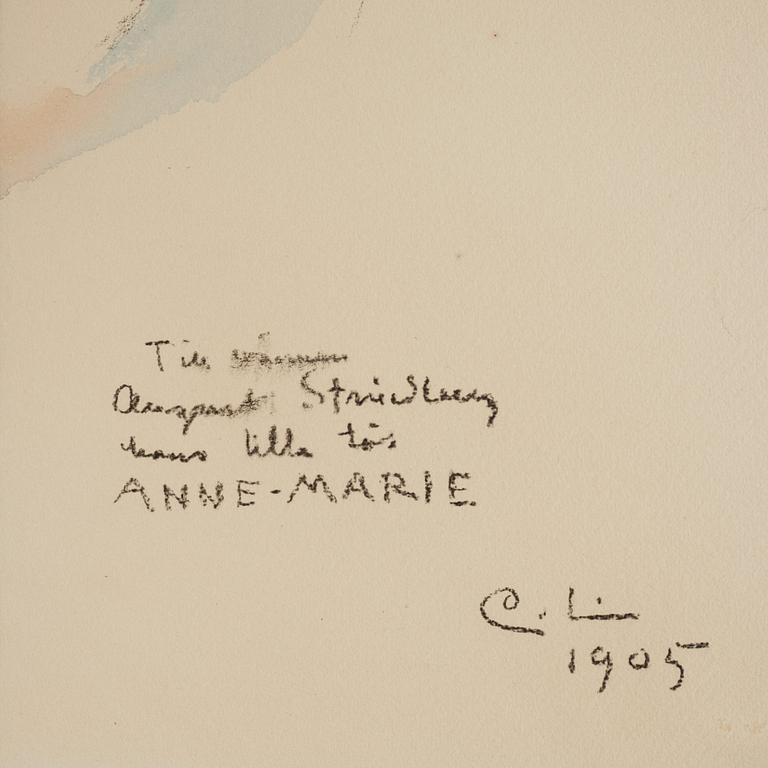 Till vännen
August Strindberg
hans lilla tös
ANNE-MARIE
C. L.
1905